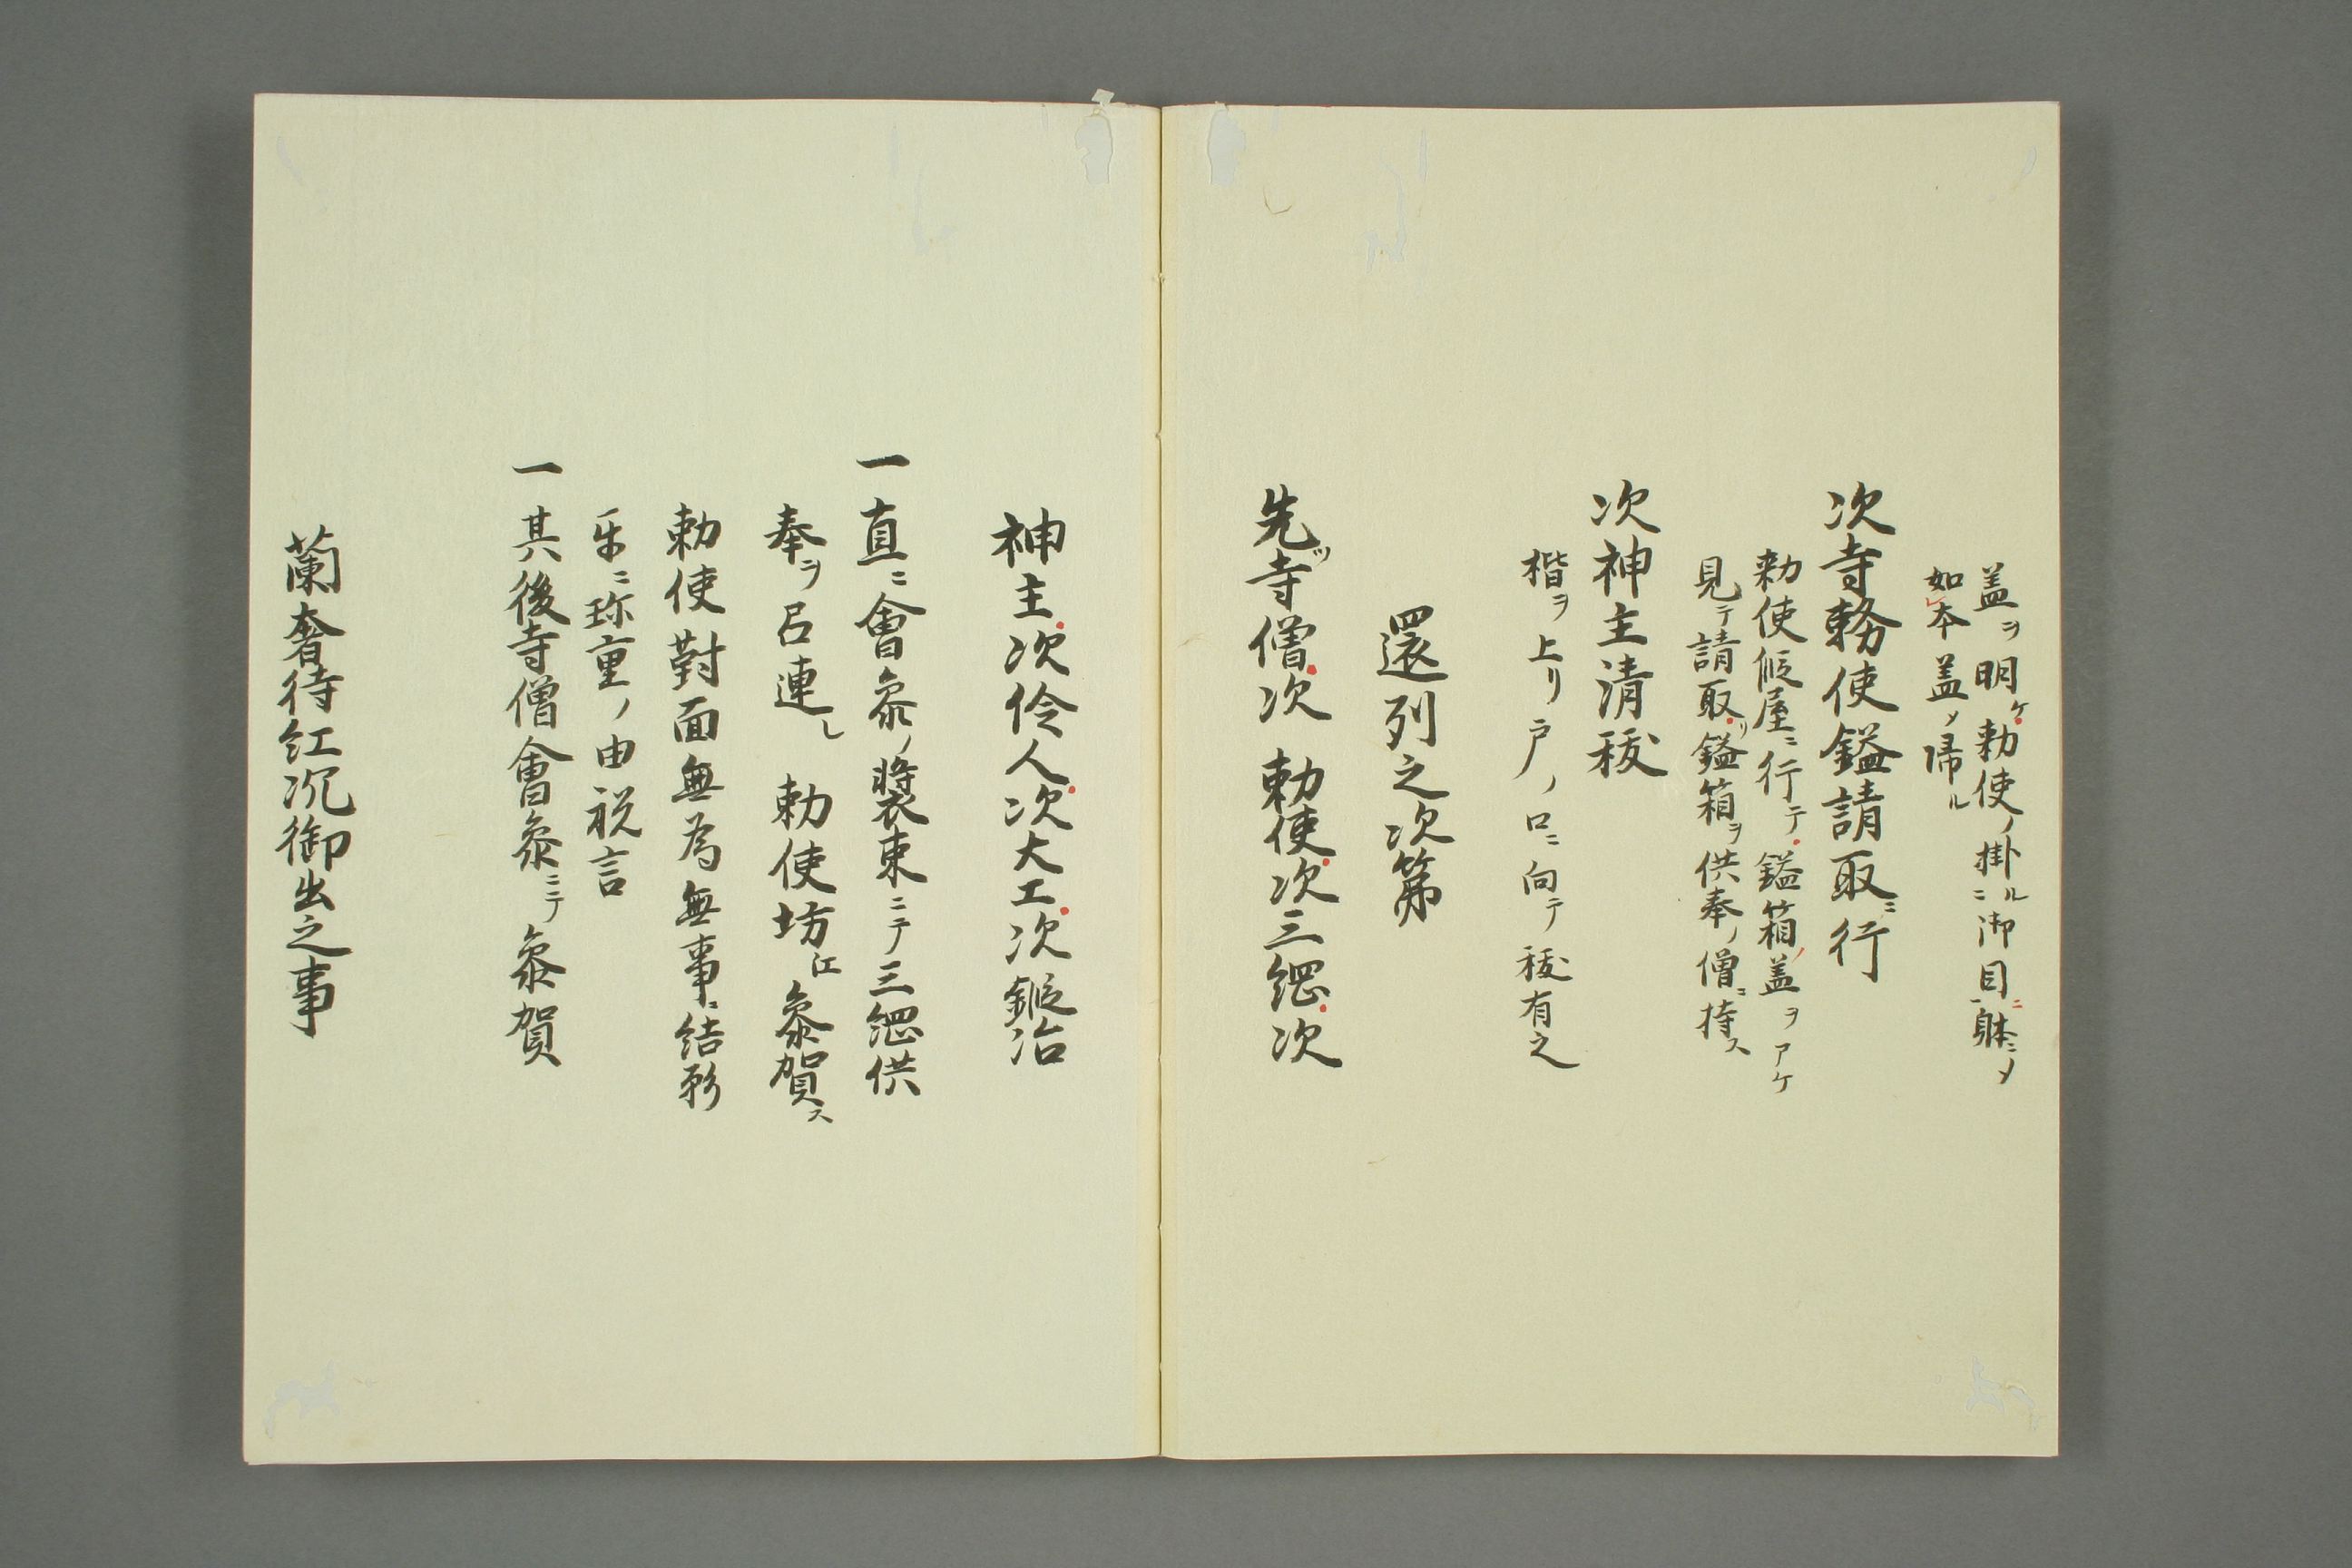 盖ヲ明ケ勅使ノ掛ルニ御目ニ一躰ニメ
如本盖メ帰ル
次寺務使鎰請取ニ行
勅使假屋ニ行テ鎰箱ノ盖ヲアケ
見テ請取リ鎰箱ヲ供奉ノ僧ニ持ス
次神主清祓
楷ヲ上リ戸ノ口ニ向テ祓有之
還列之次第
先ツ寺僧次勅使次三綱次
神主次伶人次大工次鍛冶
一直ニ會参ノ装束ニテ三綱供
奉ヲ召連し勅使坊江参賀ス
勅使對面無為無事ニ結形
乐ニ珎重ノ由祝言
一其後寺僧會参ニテ参賀
蘭奢待紅沉御出之事